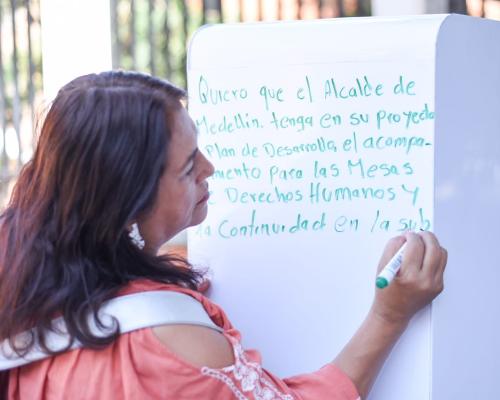 Quiero que el Alcalde de
Medellín. tenga en su proyecto
Plan de Desarrollo, el acompa-
miento para las Mesas
de Derechos Humanos y
la Continuidad en la sub